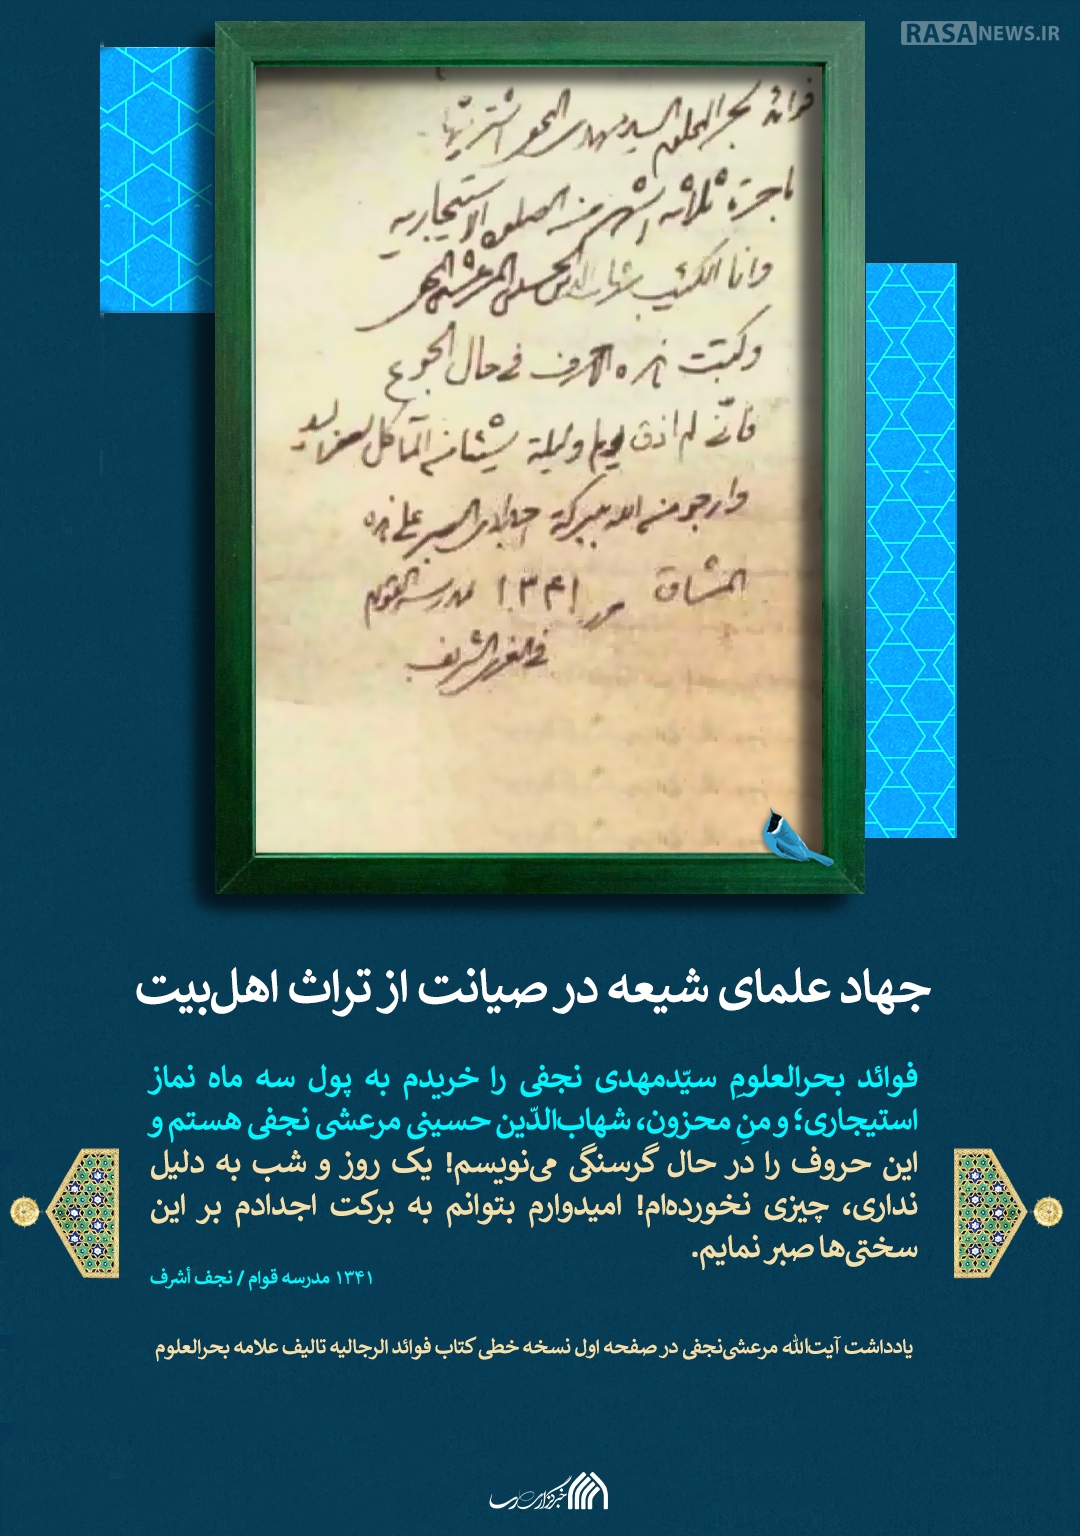 RASANEWS.IR
فوائد بحر العلوم السید مهدی النجفی اشتریتها
باجرة ثلاثه اشهر من الصلوة الاستیجاریه
وانا الکئیب شهاب الدین الحسینی المرعشی النجفی
وکتبت هذه الاحرف فی حال الجوع
فانّی لم اذق یوم ولیلة شیئا من المآکل
وارجو من الله ببرکة اجدادی الصبر علی هذه
المشاق ۱۳۴۱ مدرسة القوام
فی الغری الشریف
جهاد علمای شیعه در صیانت از تراث اهل‌بیت
فوائد بحرالعلومِ سیّدمهدی نجفی را خریدم به پول سه ماه نماز
استیجاری؛ و منِ محزون، شهاب‌الدّین حسینی مرعشی نجفی هستم و
این حروف را در حال گرسنگی می‌نویسم! یک روز و شب به دلیل
نداری، چیزی نخورده‌ام! امیدوارم بتوانم به برکت اجدادم بر این
سختی‌ها صبر نمایم.
۱۳۴۱ مدرسه قوام / نجف أشرف
یادداشت آیت‌الله مرعشی‌نجفی در صفحه اول نسخه خطی کتاب فوائد الرجالیه تالیف علامه بحرالعلوم
خبرگزاری رسا